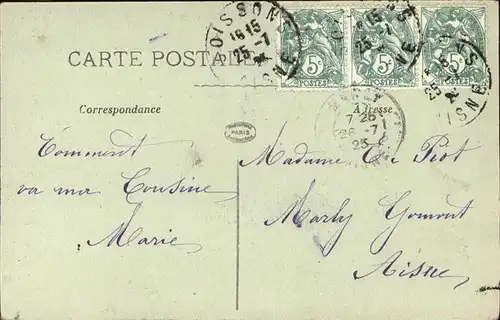 CARTE POSTALE
SOISSONS
18 15
25 -7
AISNE
5c 5c 5c
POSTES POSTES POSTES
Correspondance
Adresse
PARIS
7 25
26 -7
25
Comment
va ma Cousine
Marie
Madame
Marly Gomont
Aisne